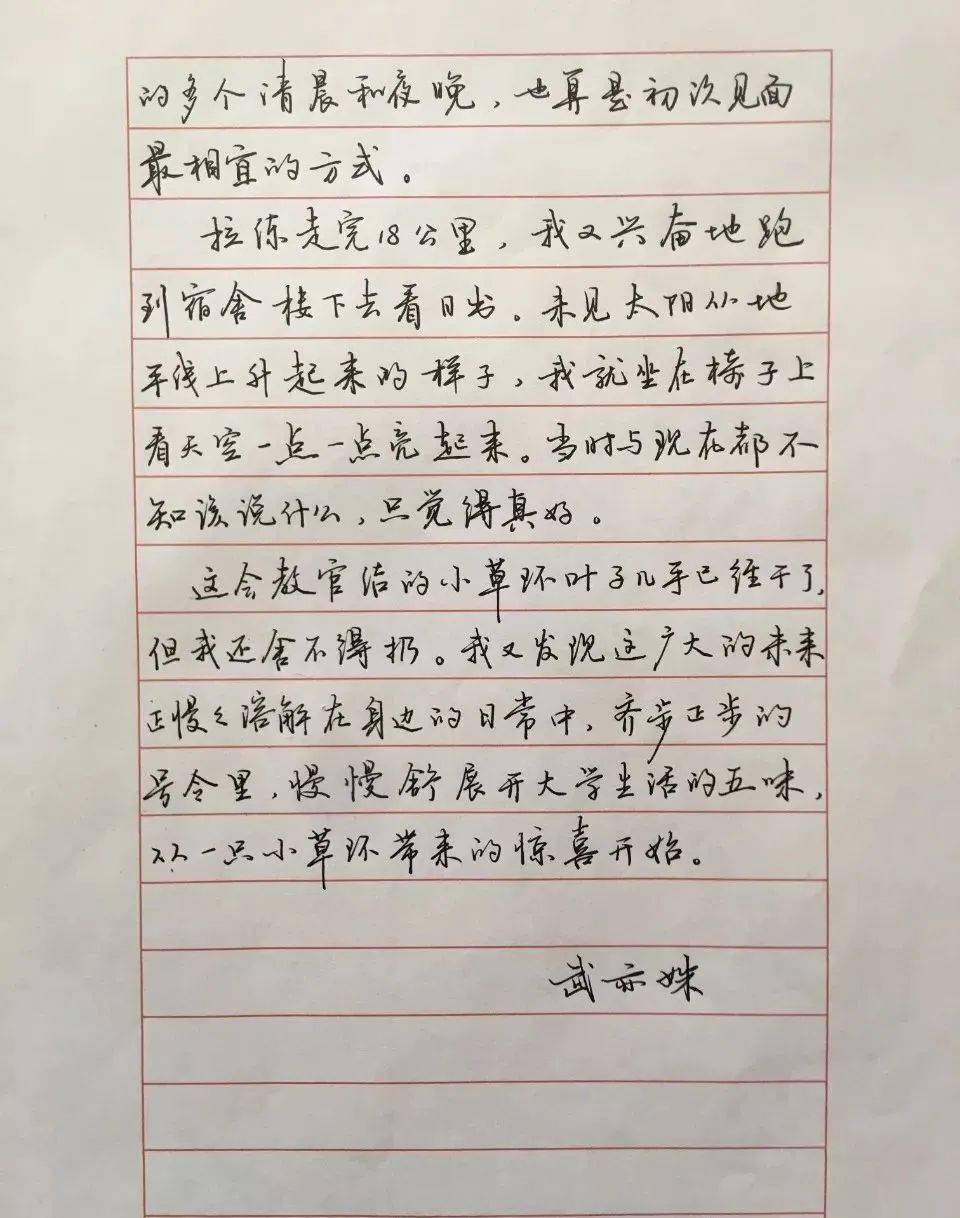 的多个清晨和夜晚，也算是初次见面
最相宜的方式。
拉练走完18公里，我又兴奋地跑
到宿舍楼下去看日出。未见太阳从地
平线上升起来的样子，我就坐在椅子上
看天空一点一点亮起来。当时与现在都不
知该说什么，只觉得真好。
这会教官结的小草环叶子几乎已经干了，
但我还舍不得扔。我又发现这广大的未来
正慢々溶解在身边的日常中，齐步正步的
号令里，慢慢舒展开大学生活的五味，
从一只小草环带来的惊喜开始。
武亦姝